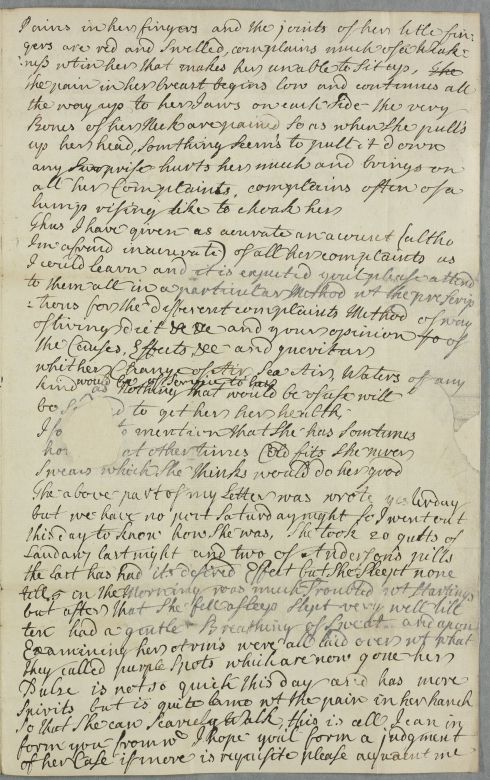 Pains in her fingers and the joints of her litle fin:
gers are red and Swelled, complains much of a weak:
ness wtin her that makes her unable to Sit up, The
the pain in her breast begins low and continues all
the way up to her Jaws on each Side the very
Bones of her Neck are pained So as when She pulls
up her head, Something Seems to pull it down
any Surprise hurts her much and brings on
all her Complaints, complains often of a
lump rising like to choak her
Thus I have given as acurate an acount (altho
Im afraid inacurate) of all her complaints as
I could learn and it is expected youl please attend
to them all in a particular Method wt the prescrip
:tions for the different complaints Method of way
of living diet &c &c and your opinion of
the Causes, Effects &c and quevitur
whither Change of Air, Sea Air, Waters of any
kind would be of Service to her
as Nothing that would be of use will
be to get her her health
I to mention that She has Somtimes
hot at other times Cold fits She never
Swears which She thinks would do her good
The above part of my Letter was wrote yesterday
but we have no post Saturday night So I went out
this day to know how She was, She took 20 gutts of
Laudany last night and two of Andersons pills
the last has had its desired Effect but She Sleept none
till 5 in the Morning was much troubled wt Startings
but after that She fell asleep Slept very well till
ten had a gentle Breathing of Sweat and upon
Examining her were all laid over wt what
they called purple Spots which are now gone her
Pulse is not so quick this day and has more
Spirits but is quite lame wt the pain in her hanch
So that She can Scarcely walk, this is all I can in
form you from wc I hope youl form a Judgment
of her Case if more is requisite please aquaint me